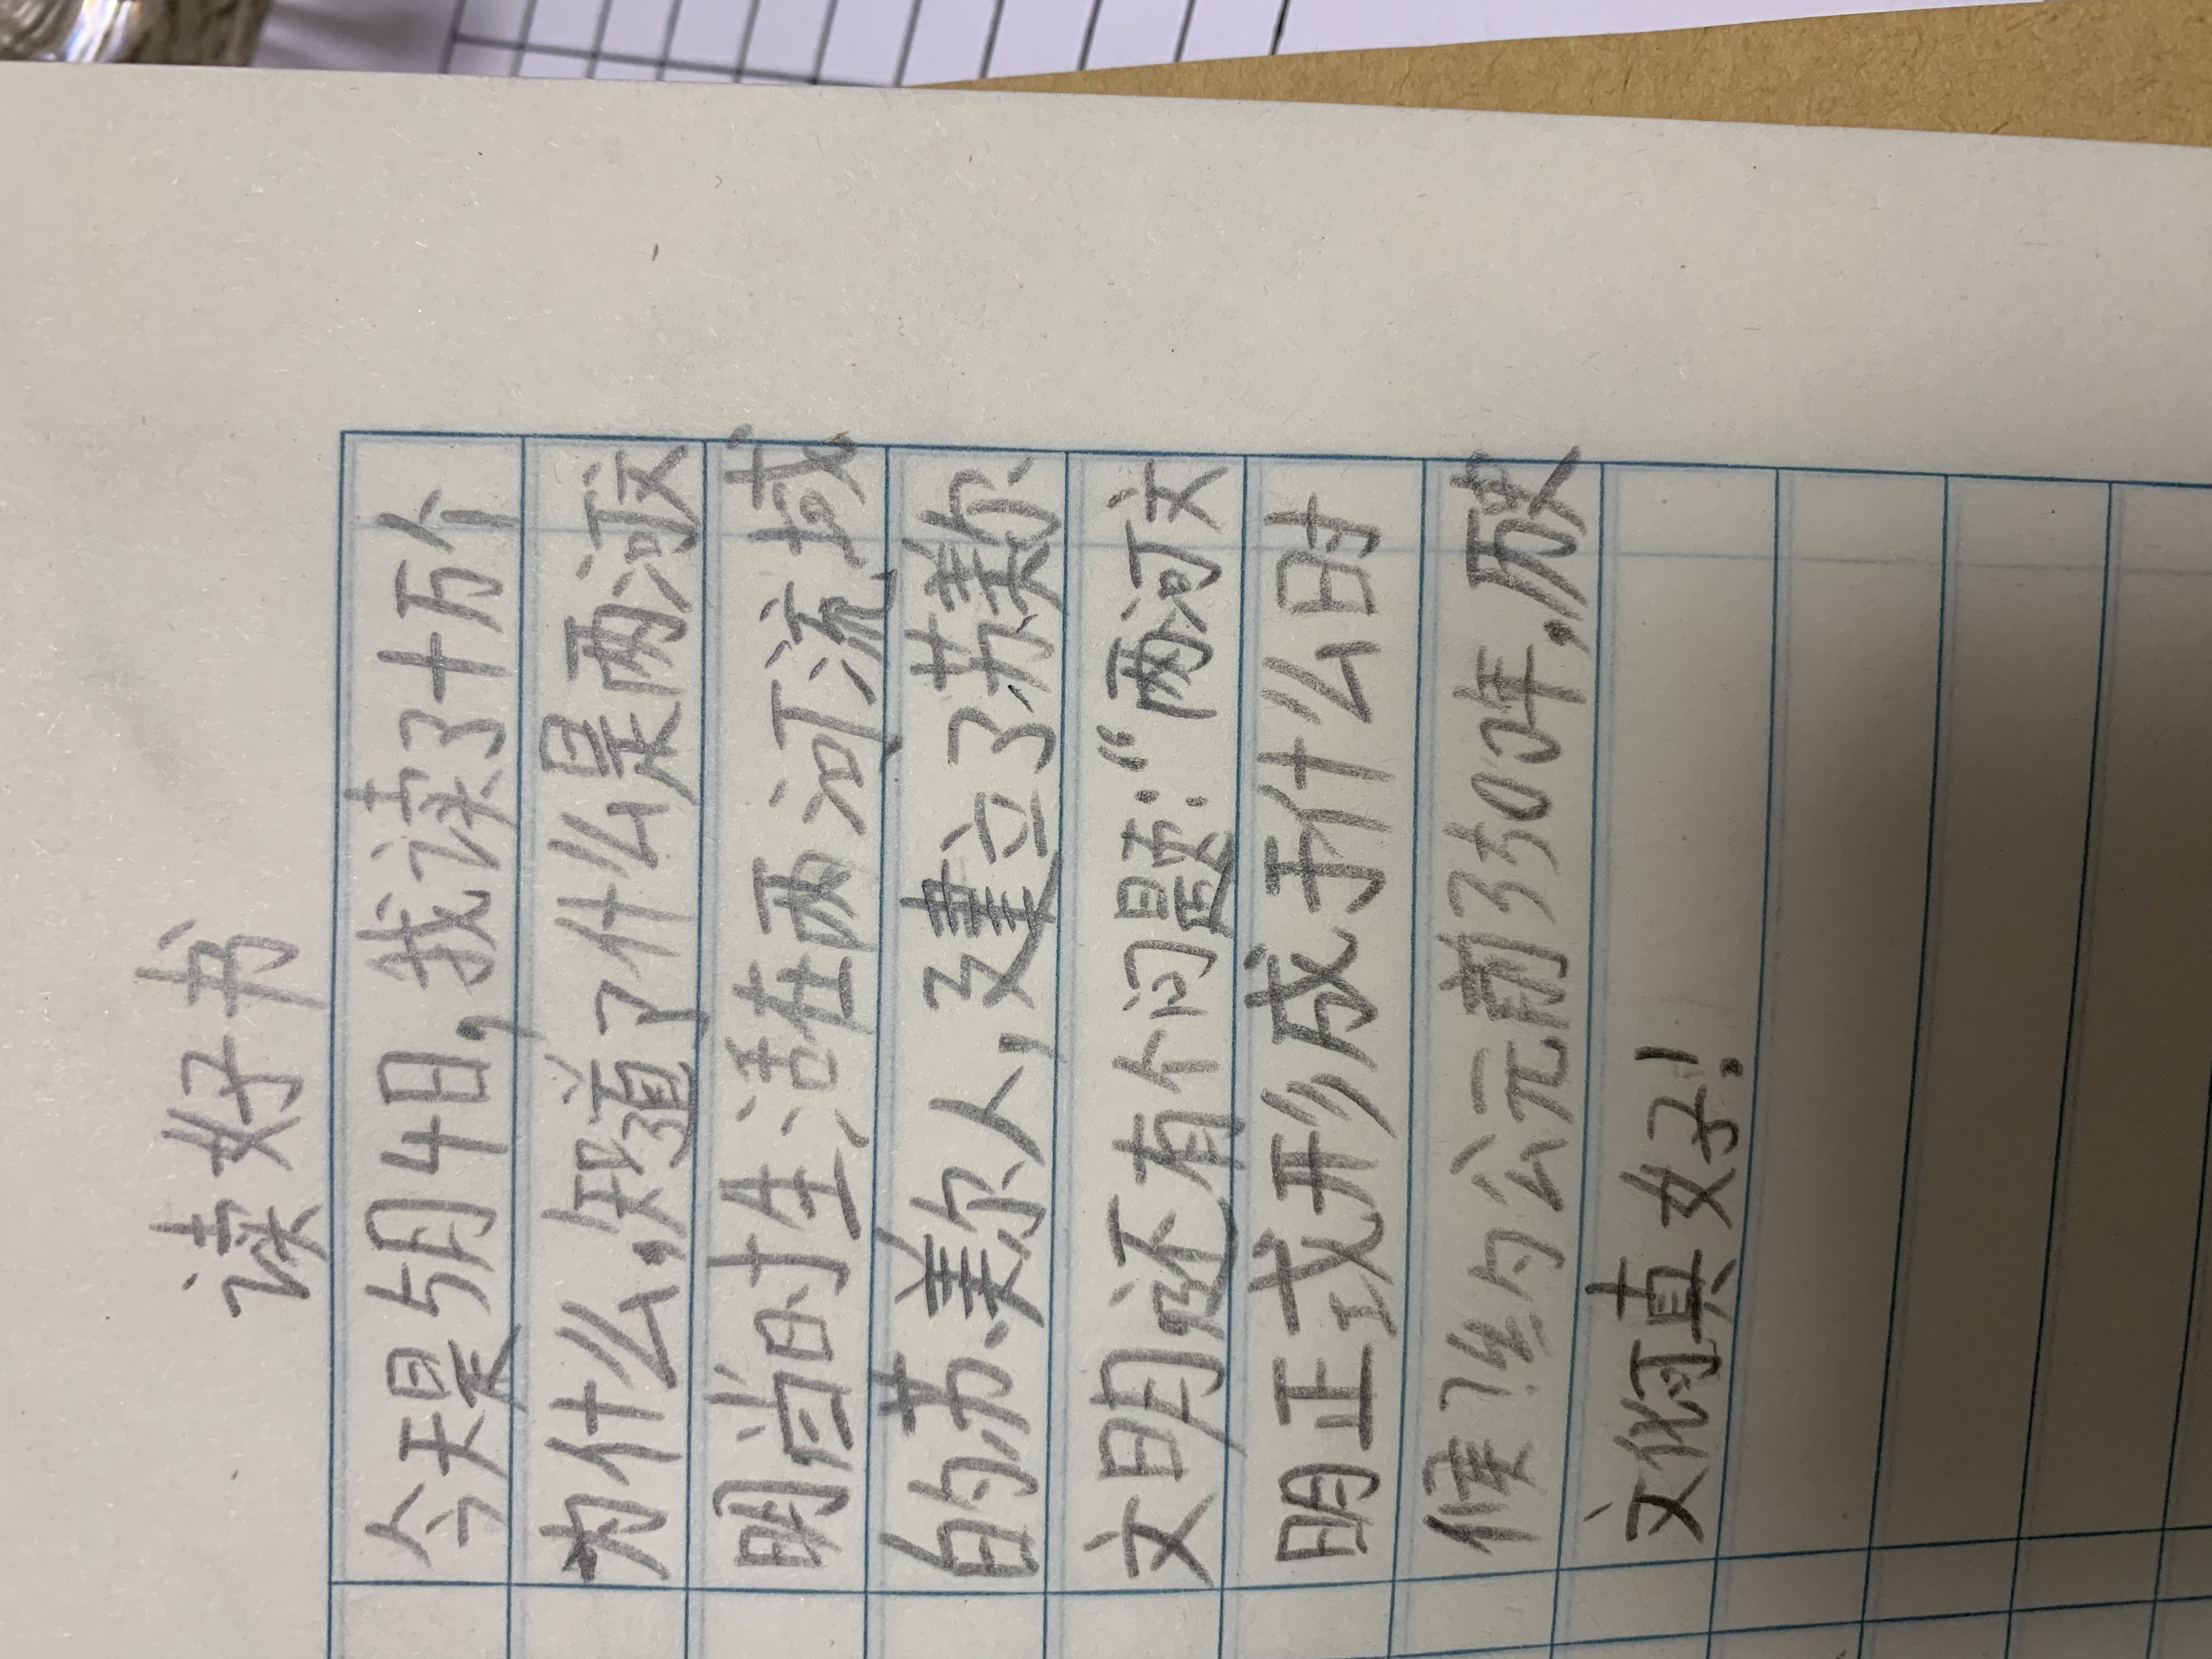 读好书
今天是5月4日，我读了十万个
为什么，知道了什么是两河文
明当时生活在两河流域
的苏美尔人，建立了苏美尔
文明还有个问题：“两河文
明正式形成于什么时
候？约公元前3500年，
文化何真好！